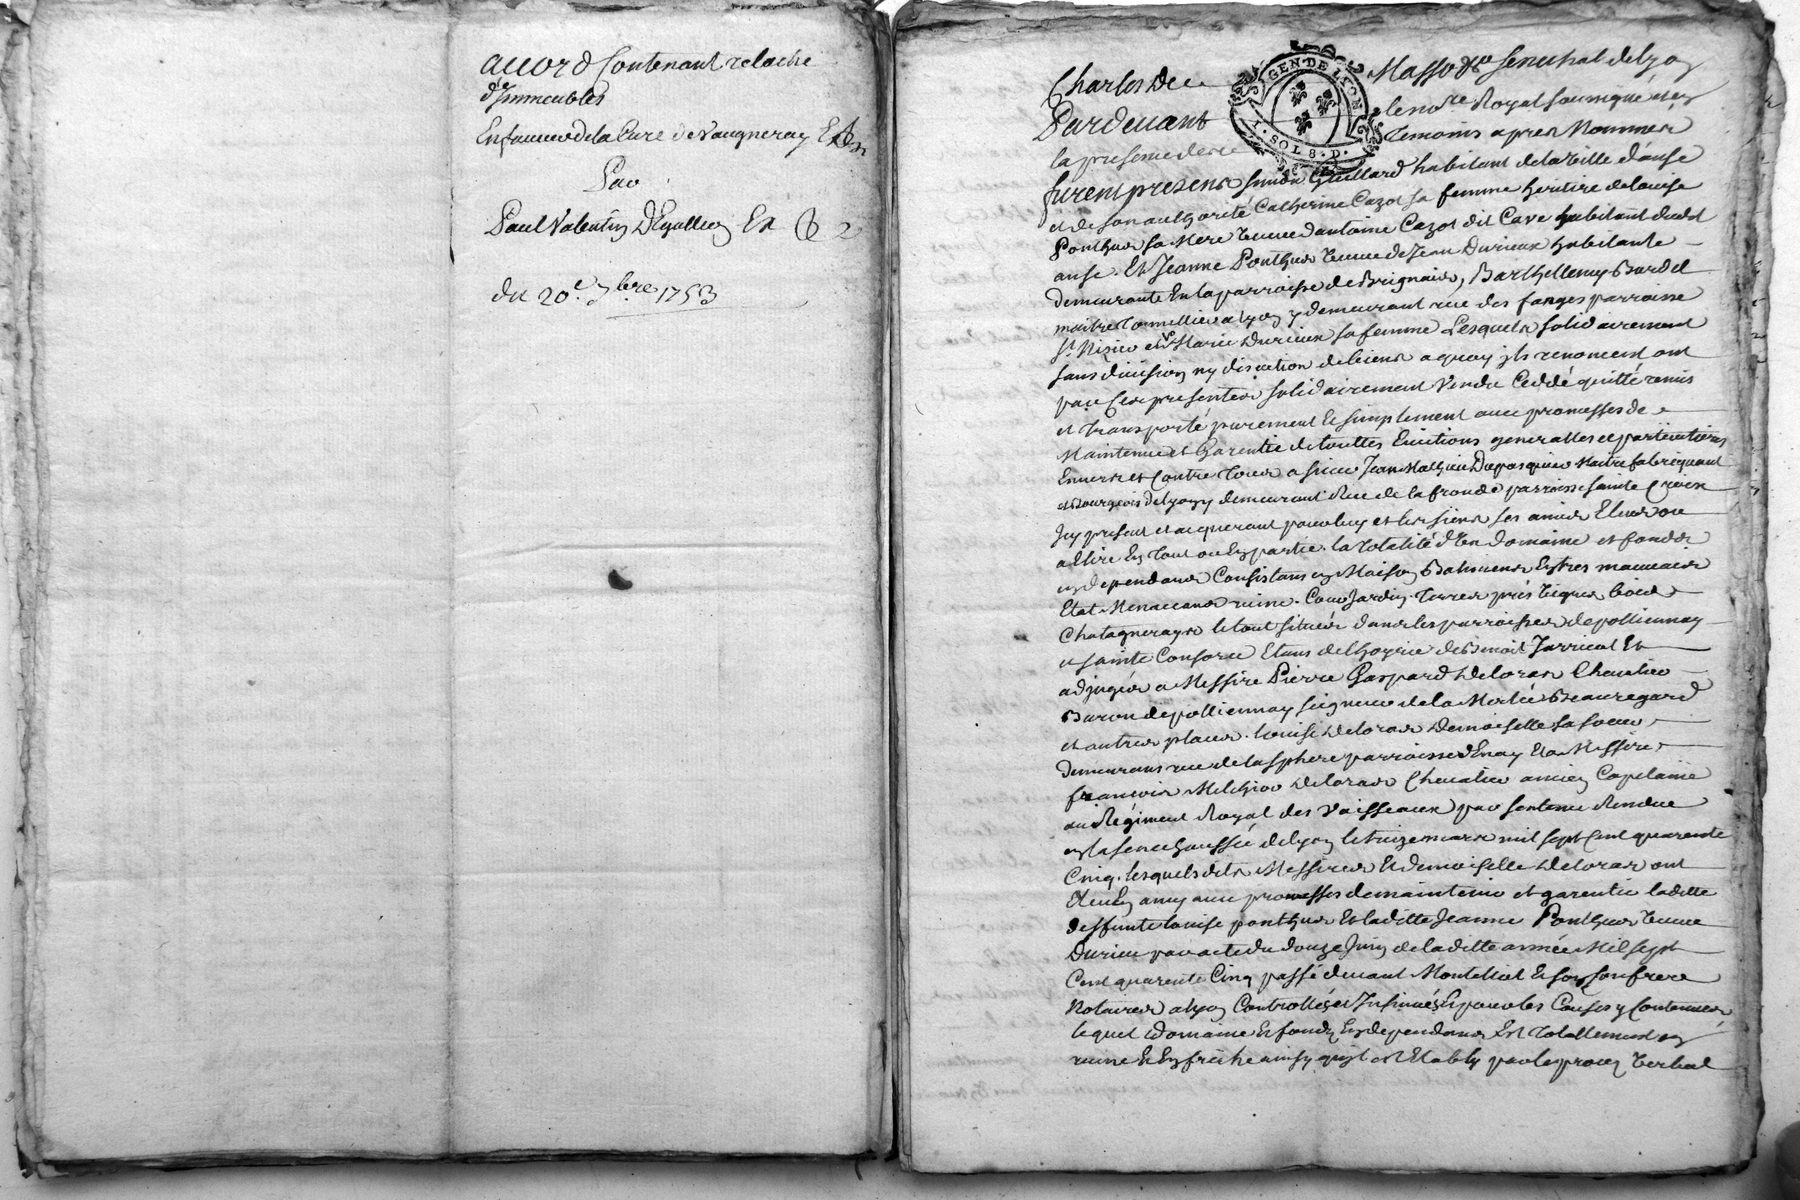 accord Contenant relache
d'Immeubles
En faveur de la Cure de Vaugneray
Par
Paul Valentin
du 20e. 7bre 1753
Charles De Masso &c senechal de Lyon
GEN. DE LYON
1. SOL 8. D.
Pardevant le nore Royal soussigné et les
la presence de Temoins apres Nommés
furent presens Simon Guillard habitant de la ville d'anse
et de son authorité Catherine Cazot sa femme heritiere de Louise
Ponthus sa Mere veuve d'antoine Cazot dit Cave habitant dudit
anse. Et Jeanne Ponthus veuve de Jean Durieux habitante
demeurante En la parroisse de Brignais, Barthellemy Bardel
maitre tonnellier a Lyon y demeurant rue des fanges parroisse
St Nizier et Marie Durieux sa femme Lesquels solidairement
sans division ny discution de biens a quoy ils renoncent ont
par Ces presentes solidairement Vendu Ceddé quitté remis
et transporté purement et simplement avec promesses de
Maintenir et Garentir de touttes Evictions generalles et particulieres
Envers et Contre tous a sieur Jean Mathieu Dupasquier Maitre fabriquant
et Bourgeois de Lyon y demeurant Rue de la fronde parroisse sainte Croix
Icy present et acquerant pour luy et les siens ses amis Elus ou
a Elire En tout ou En partie. la totalité d'Un domaine et fonds
en dependans Consistans en Maison Batimens En tres mauvais
Etat Menacans ruine. Cour Jardin. Terres prés Vignes bois
Chatagnerays le tout situés dans les parroisses de pollionnay
et sainte Consorce Etans de l'hoyrie de Benoit Jarricot Et
adjugés a Messire Pierre Gaspard Deloras Chevalier
Baron de pollionnay seigneur de la Morlée Beauregard
et autres places. Louise Deloras Demoiselle sa soeur
demeurans rue de la sphere parroisse d'Enay Et a Messire
francois Melchior Deloras Chevalier ancien Capitaine
au Régiment Royal des Vaisseaux par sentence Rendue
en la senechaussée de Lyon le treize mars mil sept Cent quarente
Cinq. lesquels dits Messires Et demoiselle Deloras ont
Elu En amy avec promesses de maintenir et garentir ladite
deffunte Louise ponthus Et ladite Jeanne Ponthus Veuve
Durieu par acte du douze Juin de ladite année Mil sept
Cent quarente Cinq passé devant Montellier Et son Confrere
Notaires a Lyon Controllé et Insinué Et pour les Causes y Contenues
lequel Domaine Et fonds En dependans Est totallement en
ruine Et En friche ainsy qu'il est Etably par le procez Verbal